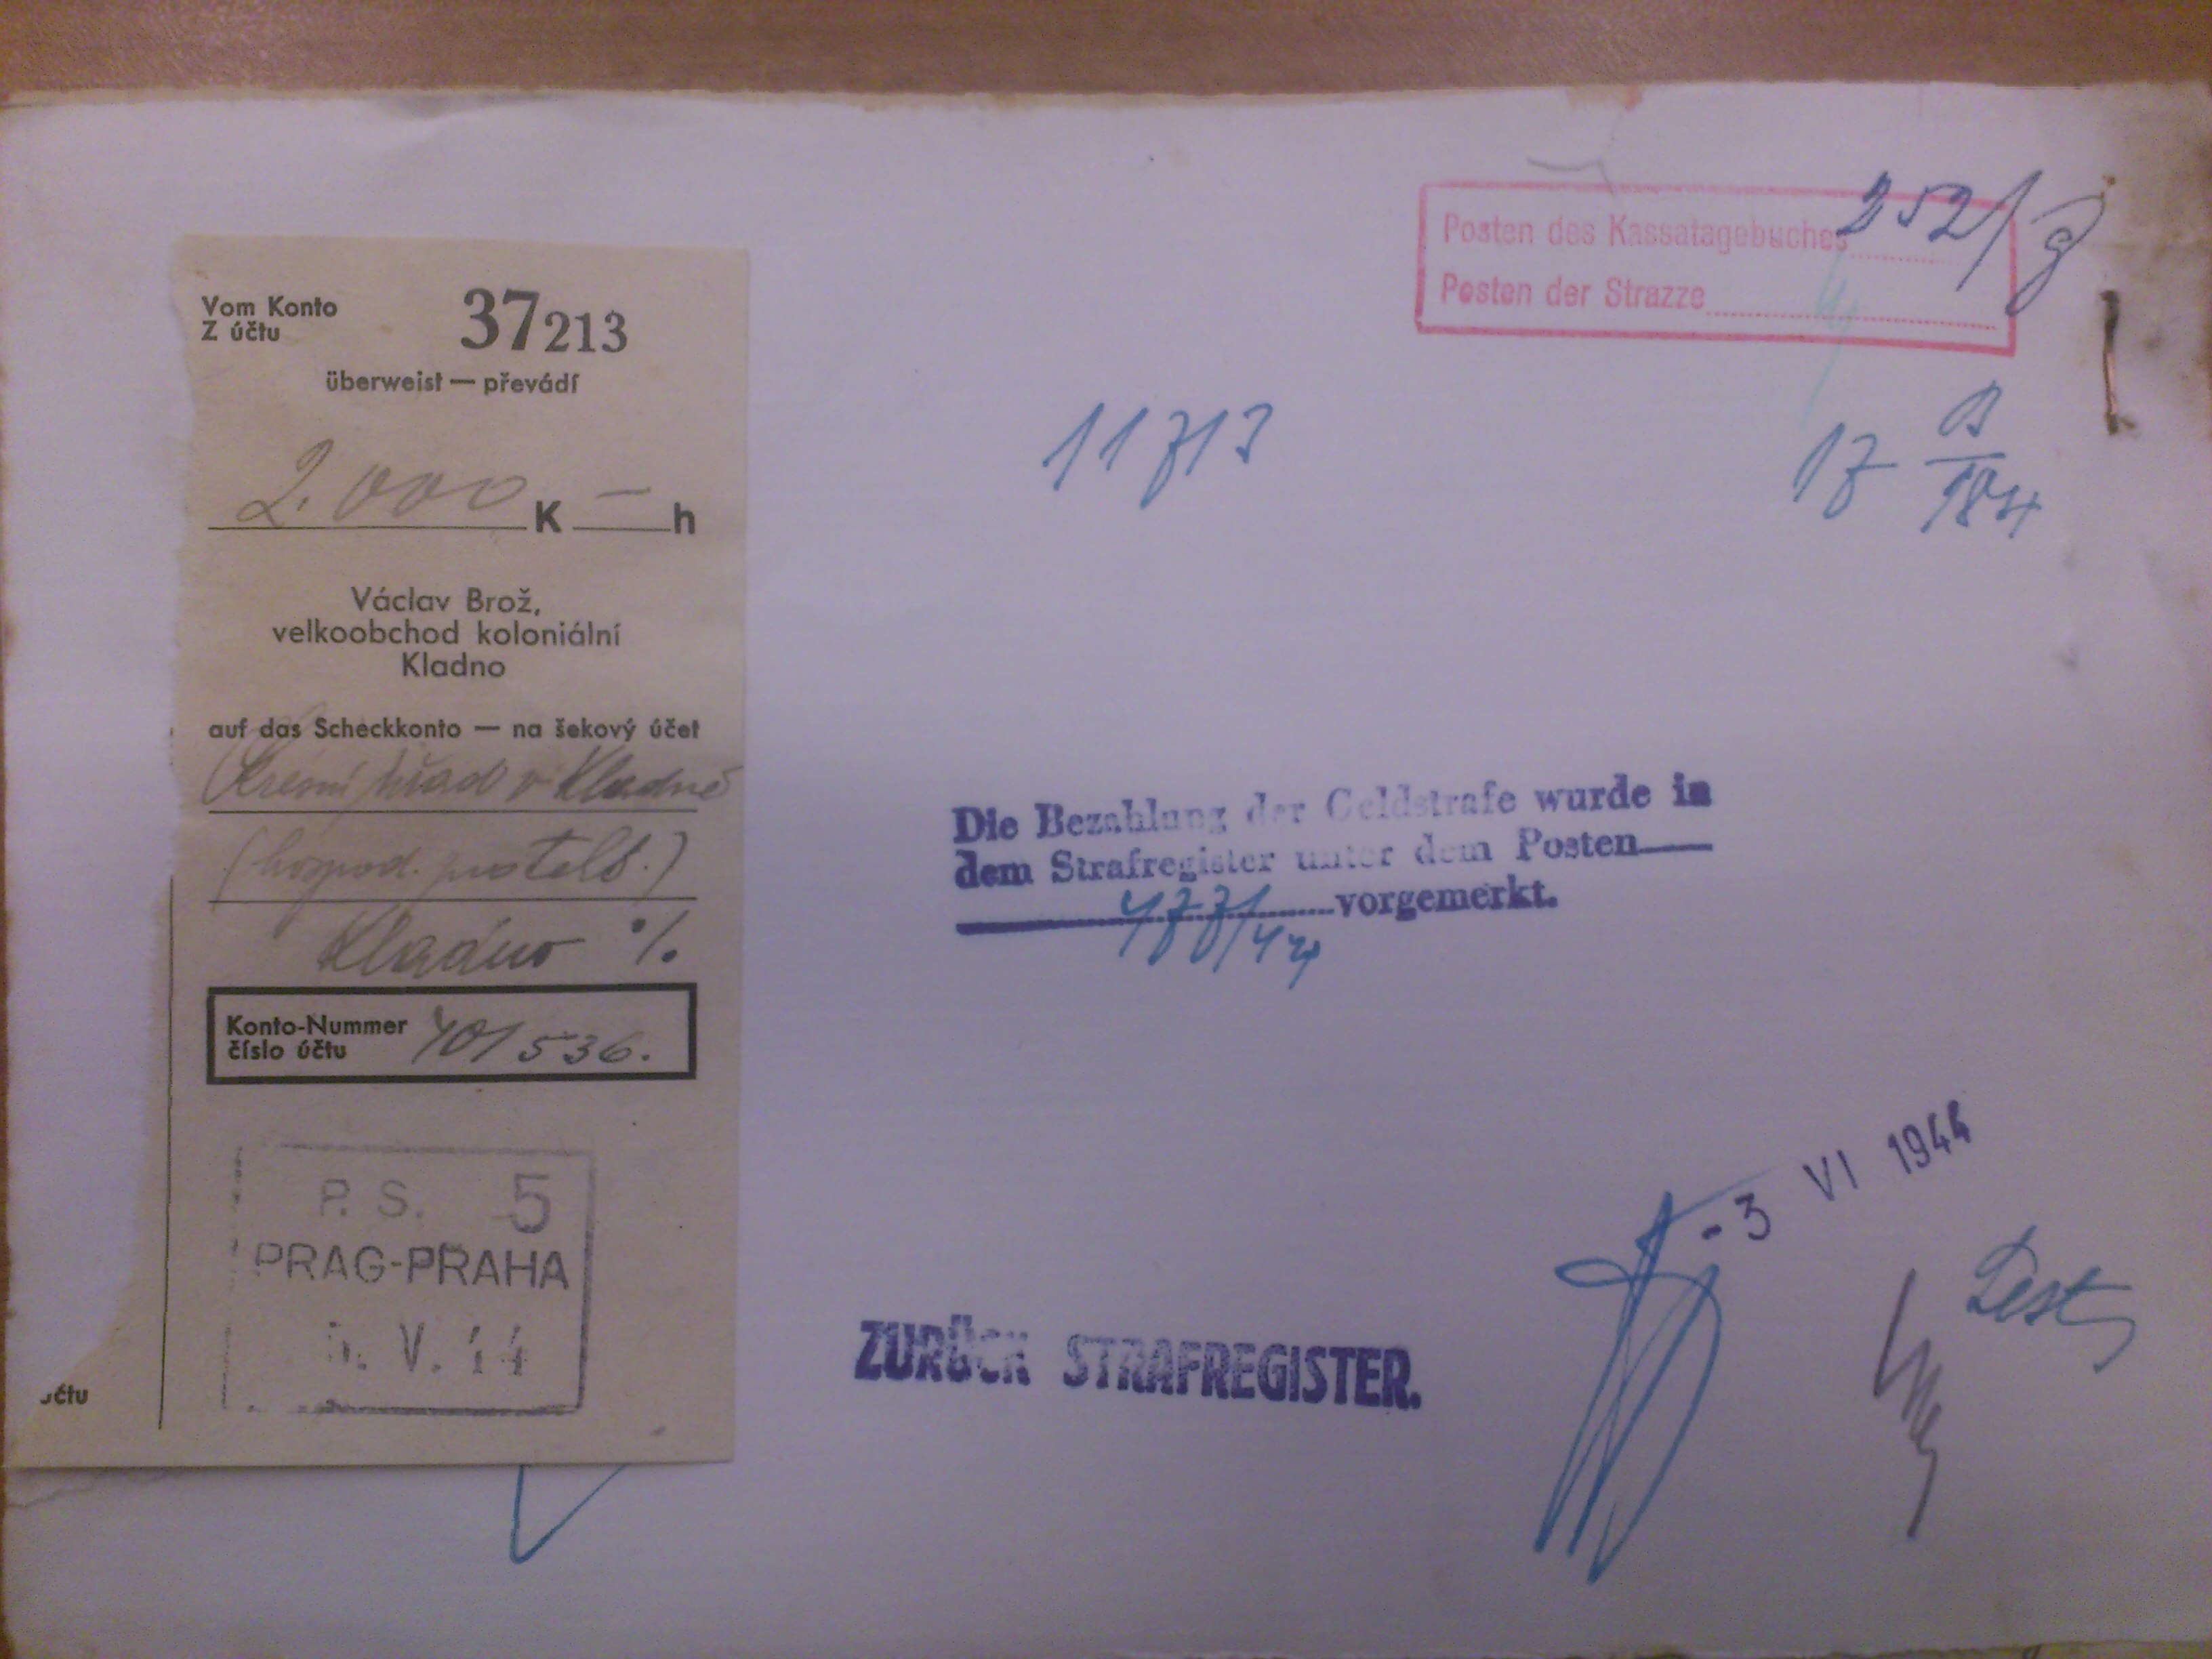 Vom Konto
Z účtu
37213
überweist — převádí
2.000 K — h
Václav Brož,
velkoobchod koloniální
Kladno
auf das Scheckkonto — na šekový účet
Okresní úřad v Kladně
(hospod.
Kladno ·/.
Konto-Nummer
číslo účtu
401 536.
P. S. 5
PRAG-PRAHA
V. 44
účtu
Posten des Kassatagebuches 252/
Posten der Strazze
11713
17
Die Bezahlung der Geldstrafe wurde in
dem Strafregister unter dem Posten
4771/44 vorgemerkt.
- 3 VI 1944
ZURÜCK STRAFREGISTER.